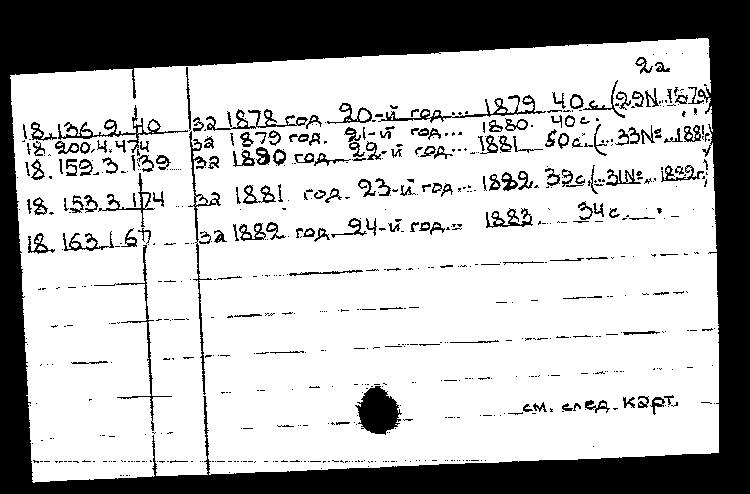 2а
18.136.2.40 за 1878 год. 20-й год... 1879 40 с. (29№.1879)
18.200.4.474 за 1879 год. 21-й год... 1880. 40 с.
18.159.3.139 за 1880 год. 22-й год... 1881 50 с. (...33№...1881г.)
18.153.3.174 за 1881 год. 23-й год... 1882. 39с. (..31№...1882г.)
18.163.1.67 за 1882 год. 24-й год... 1883. 34 с.
см. след. карт.